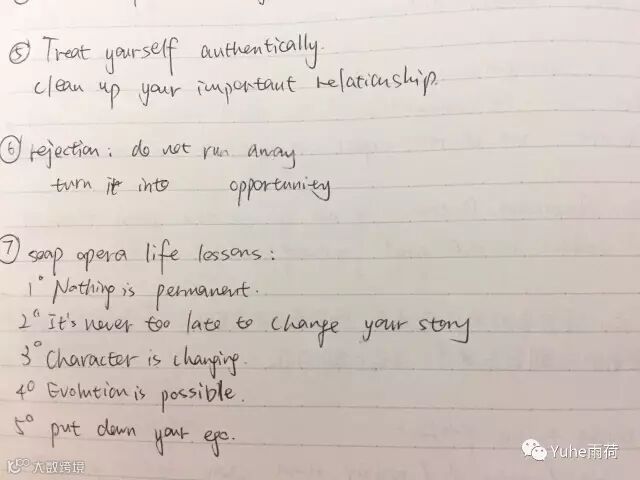 ⑤ Treat yourself authentically.
clean up your important relationship.
⑥ rejection: do not run away
turn it into opportunity
⑦ soap opera life lessons:
1° Nothing is permanent.
2° It's never too late to change your story
3° Character is changing.
4° Evolution is possible.
5° put down your ego.
Yuhe雨荷
大数跨境